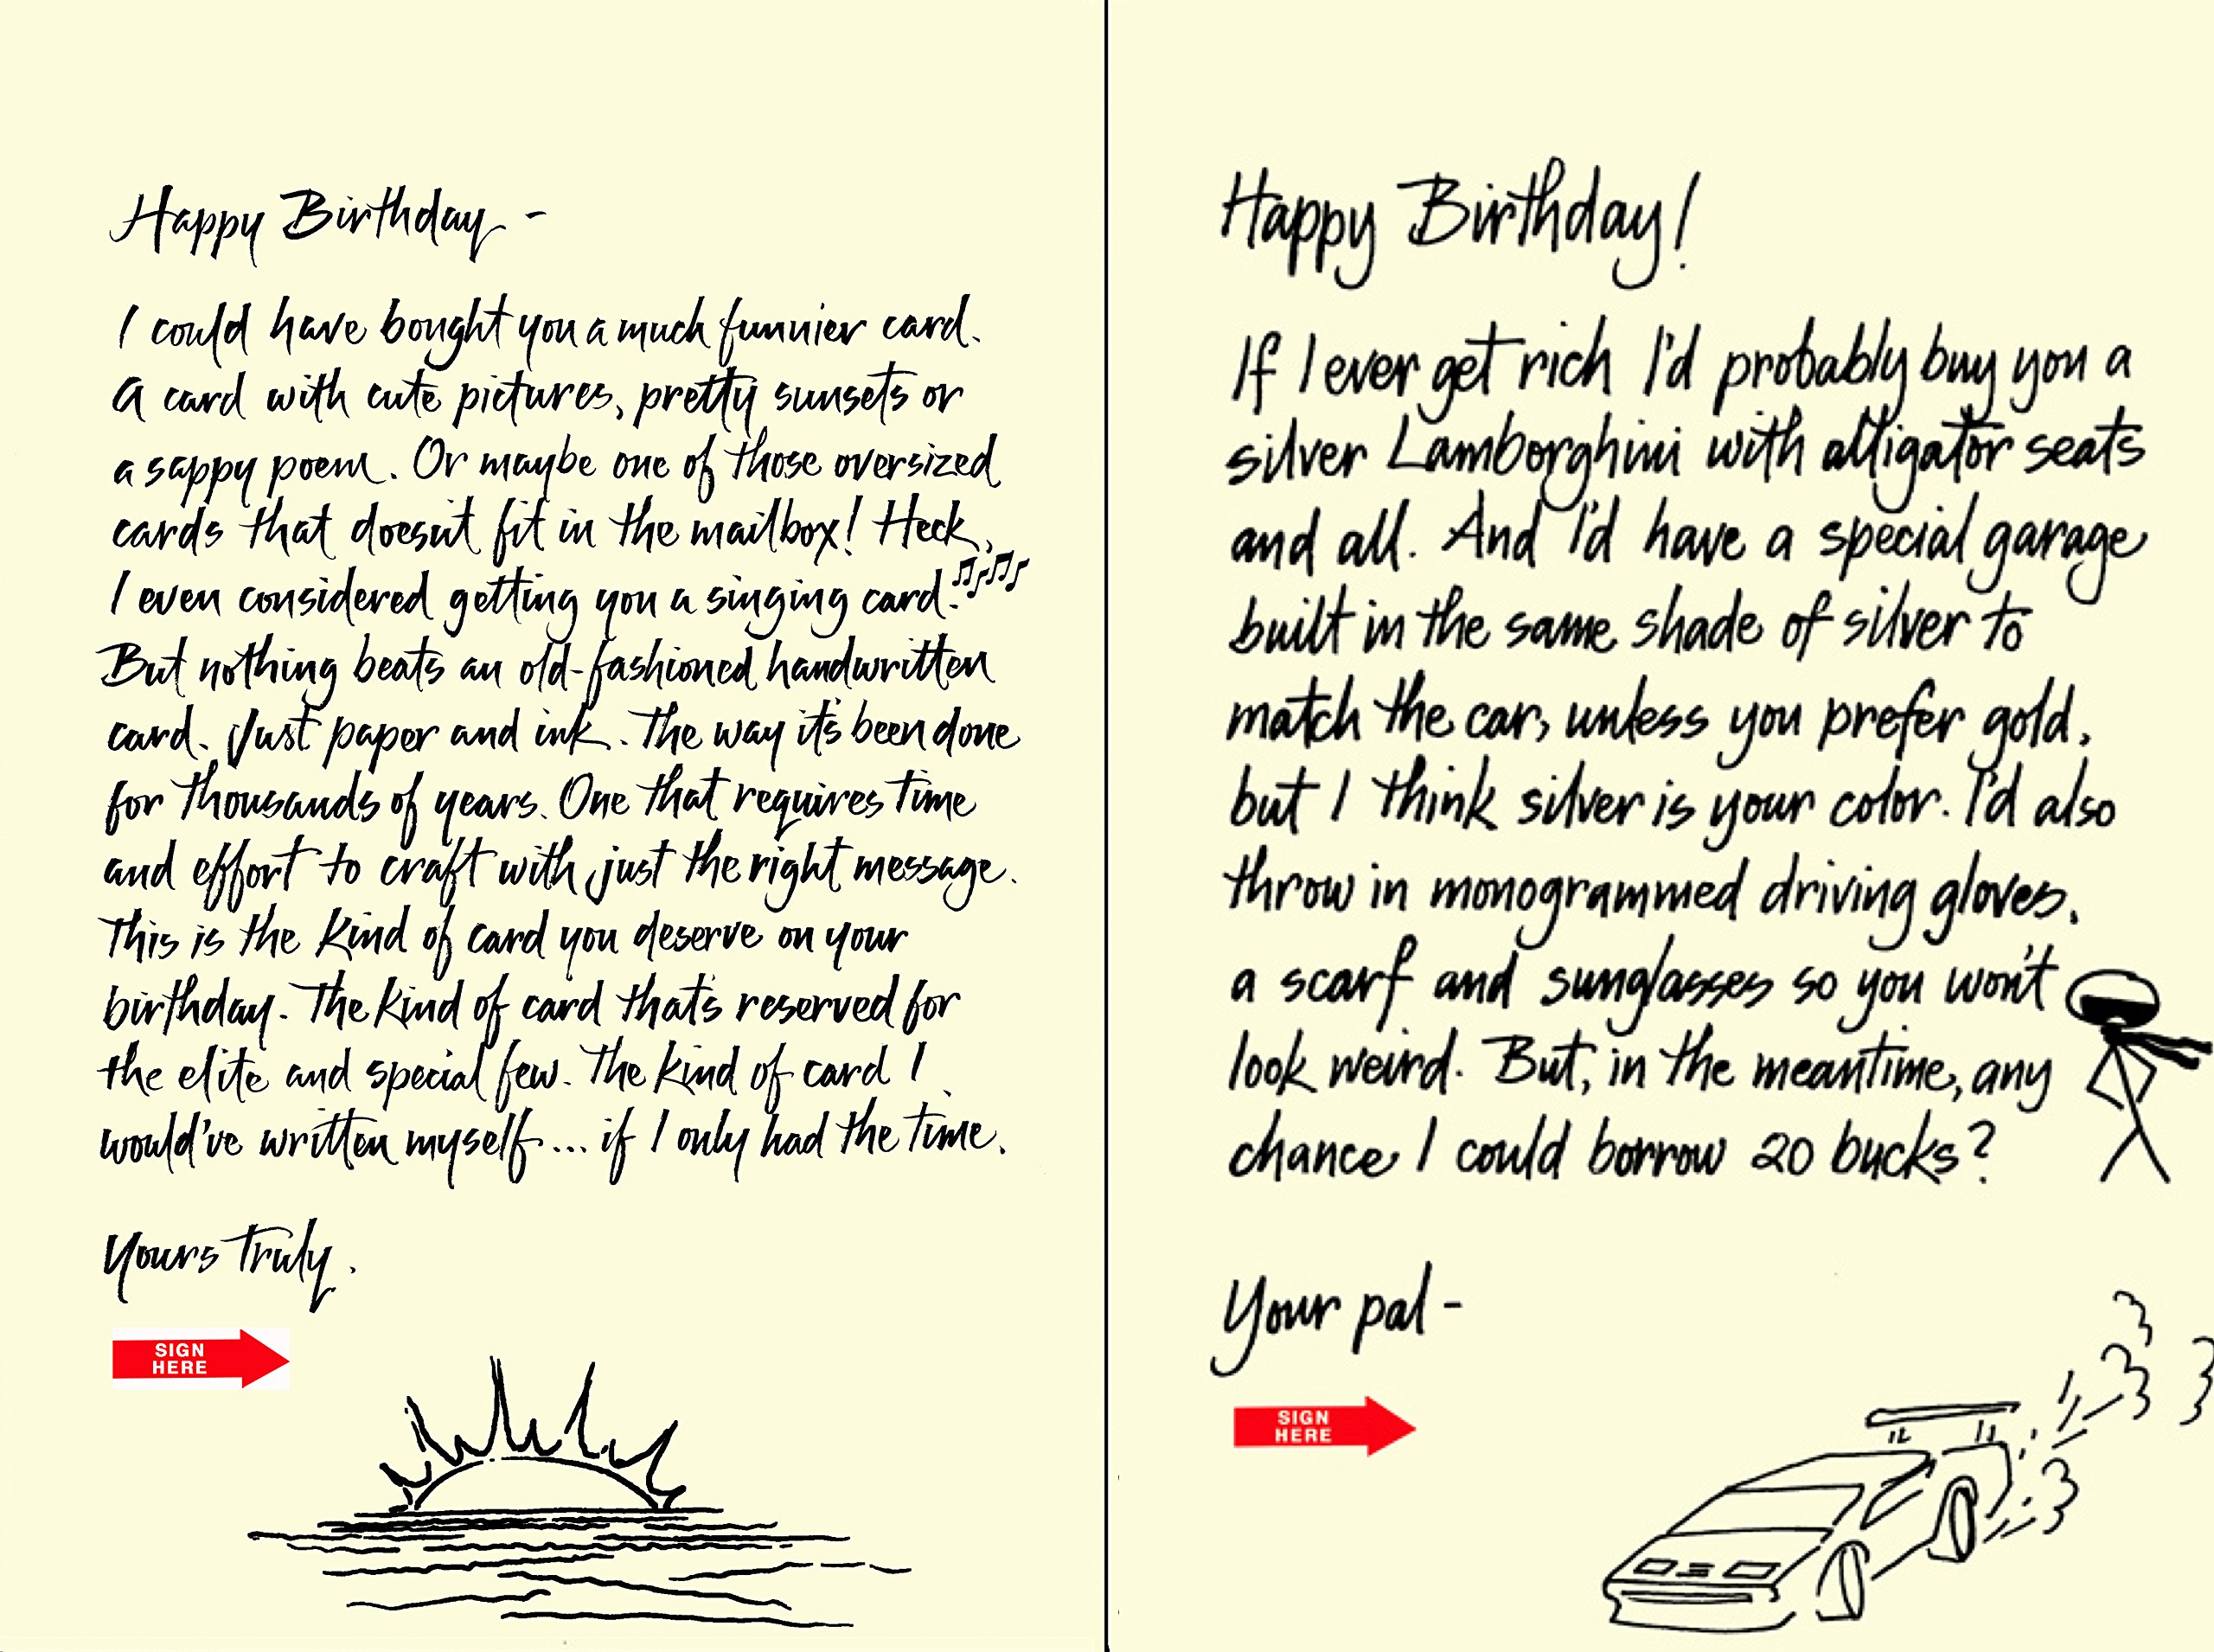 Happy Birthday -
I could have bought you a much funnier card.
A card with cute pictures, pretty sunsets or
a sappy poem. Or maybe one of those oversized
cards that doesn't fit in the mailbox! Heck,
I even considered getting you a singing card.
But nothing beats an old-fashioned handwritten
card. Just paper and ink. The way it's been done
for thousands of years. One that requires time
and effort to craft with just the right message.
This is the kind of card you deserve on your
birthday. The kind of card that's reserved for
the elite and special few. The kind of card I
would've written myself... if I only had the time.
Yours Truly.
SIGN
HERE
Happy Birthday!
If I ever get rich I'd probably buy you a
silver Lamborghini with alligator seats
and all. And I'd have a special garage
built in the same shade of silver to
match the car, unless you prefer gold,
but I think silver is your color. I'd also
throw in monogrammed driving gloves,
a scarf and sunglasses so you won't
look weird. But, in the meantime, any
chance I could borrow 20 bucks?
Your pal -
SIGN
HERE